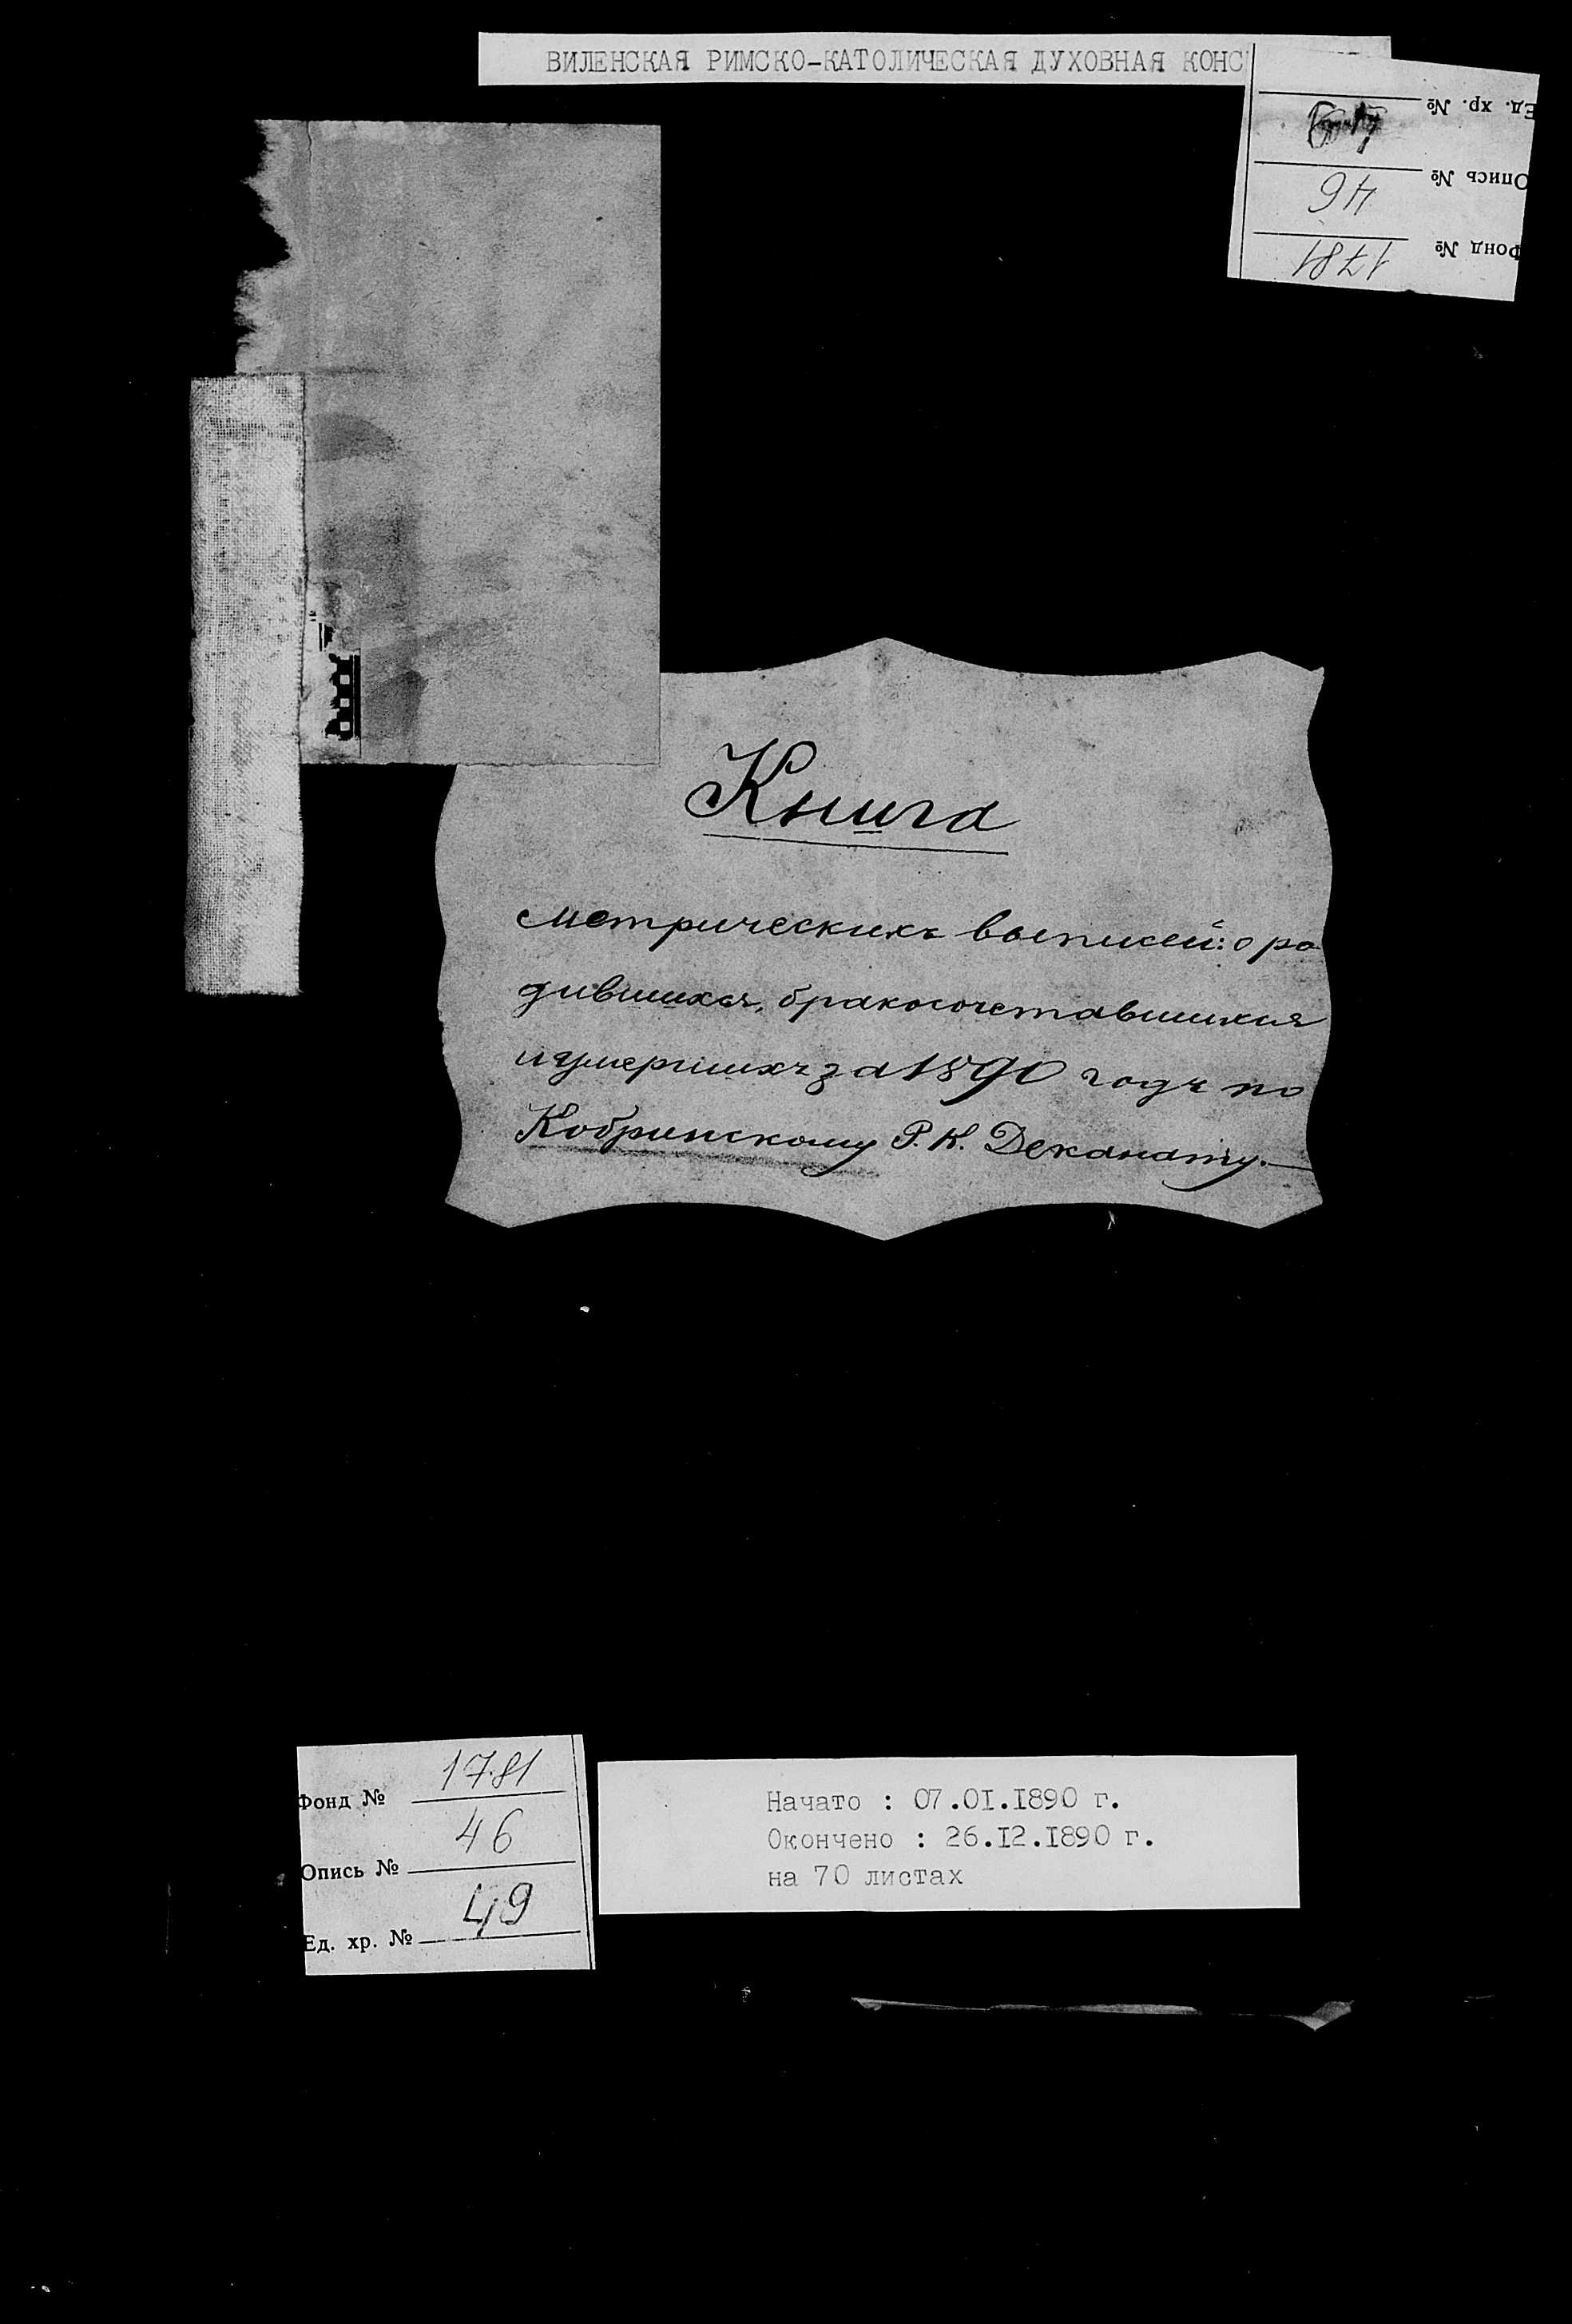 ВИЛЕНСКАЯ РИМСКО-КАТОЛИЧЕСКАЯ ДУХОВНАЯ КОНС
Ед. хр. №
Опись № 46
Фонд № 1781
Книга
Метрическихъ выписей: о ро
дившихся, бракосочетавшихся
и умершихъ за 1890 годъ по
Кобринскому Р. К. Деканату.—
Фонд № 1781
Опись № 46
Ед. хр. № 49
Начато : 07.01.1890 г.
Окончено : 26.12.1890 г.
на 70 листах